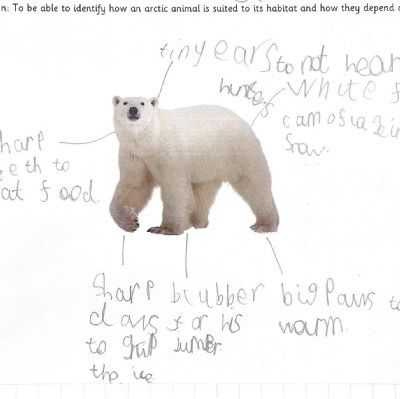 n: To be able to identify how an arctic animal is suited to its habitat and how they depend o
tiny ears to not hear
hunters
White f
camofaain
snow.
sharp
teeth to
at food
Sharp
claws
to grip
the ice
blubber
for his
big Paws to
warm.